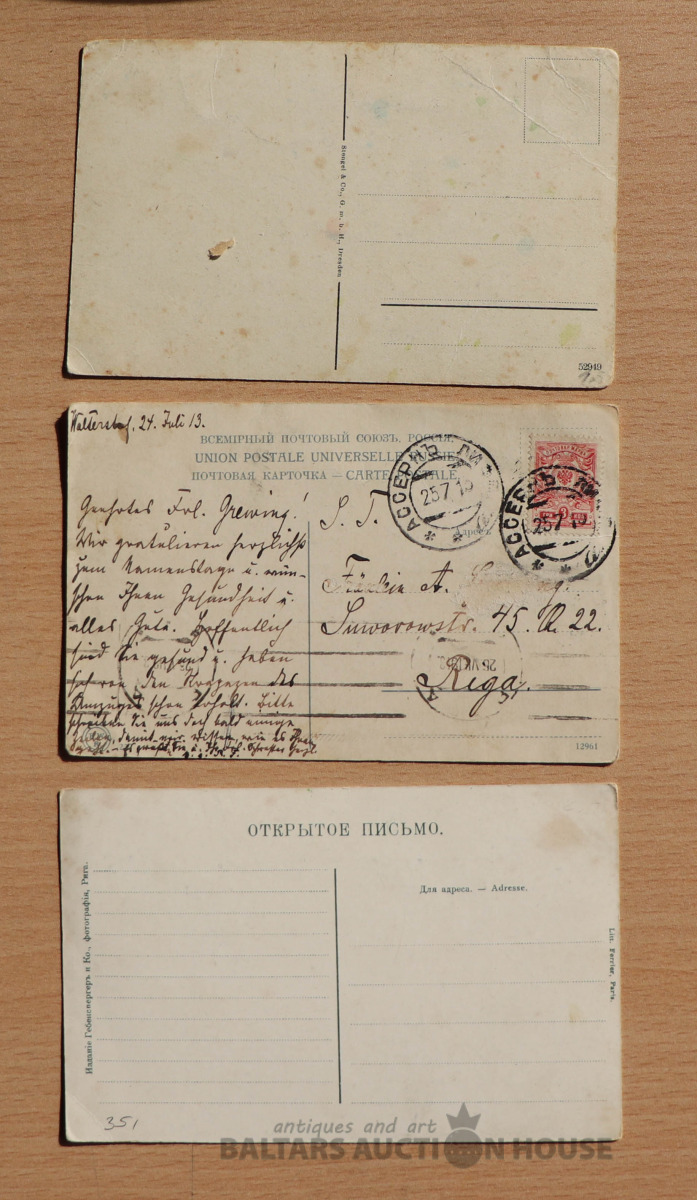 Stengel & Co., G. m. b. H., Dresden
52949
Waltershof, 24. Juli 13.
ВСЕМІРНЫЙ ПОЧТОВЫЙ СОЮЗЪ. РОССІЯ.
UNION POSTALE UNIVERSELLE RUSSIE
ПОЧТОВАЯ КАРТОЧКА — CARTE POSTALE
АССЕРНЪ
25 7 13
АССЕРНЪ
25 7 13
Geehrtes Frl. Grewing!
Wir gratulieren herzlichst
zum Namenstage u. wün-
schen Ihnen Gesundheit u.
alles Gute. Hoffentlich
sind Sie gesund u. haben
den des
schon erhalt. Bitte
schreiben Sie uns doch bald einige
damit wir wissen, wie es
S. T.
Fräulein A.
Suworowstr. 45. Q. 22.
Riga.
12961
ОТКРЫТОЕ ПИСЬМО.
Для адреса. — Adresse.
Изданіе Гебенспергеръ и Ко., фотографія, Рига.
Lit. Ferrier, Paris.
351
antiques and art
BALTARS AUCTION HOUSE